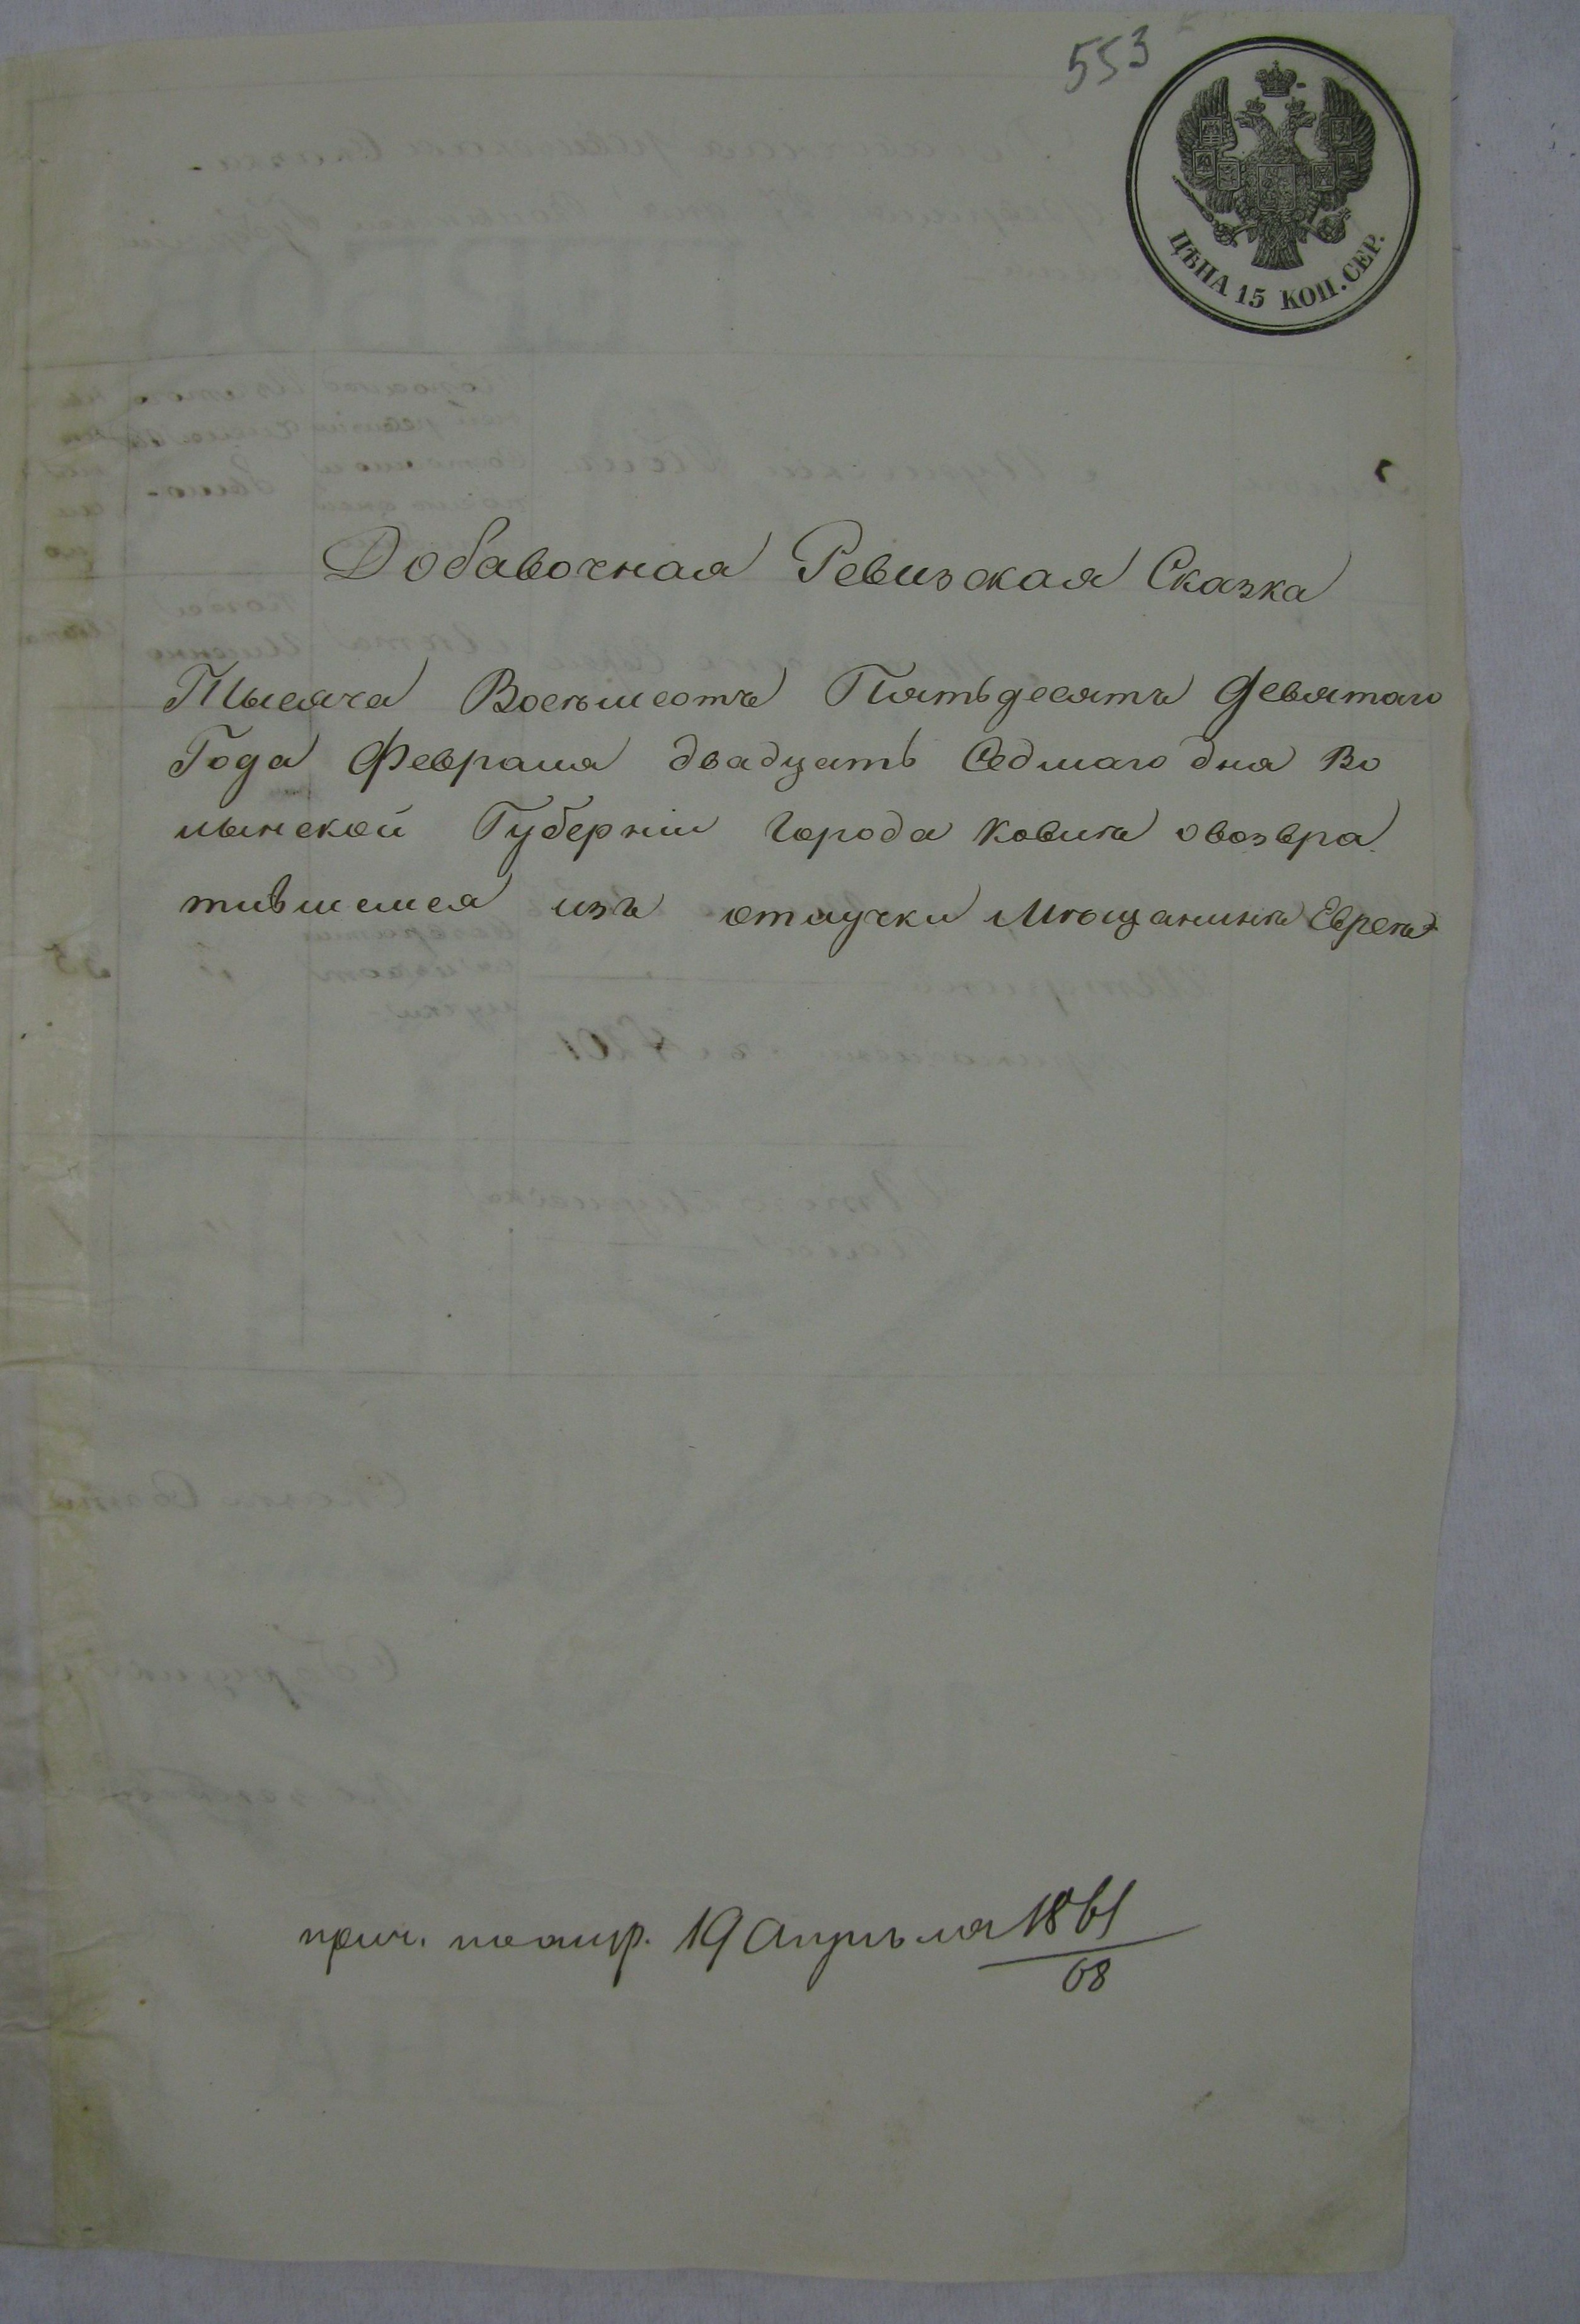 553
ЦѢНА 15 КОП. СЕР.
Добавочная Ревизская Сказка
Тысяча Восемьсотъ Пятьдесятъ девятаго
Года Февраля двадцать Седмаго дня Во
лынской Губерніи города Ковеля овозвра
тившемся изъ отлучки Мѣщанинѣ Евреѣ
19 Апрѣля 1861
68